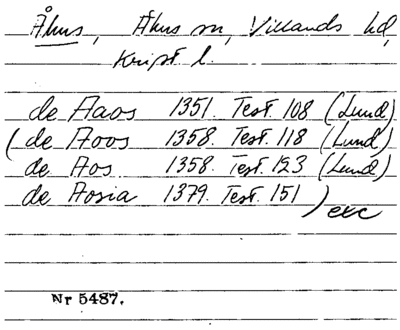 Åhus, Åhus sn, Villands hd,
Kript. l.
de Aaos 1351. Test. 108 (Lund)
(de Aoos 1358. Test. 118 (Lund)
de Aos 1358. Test. 123 (Lund)
de Aosia 1379. Test. 151 ) exc
Nr 5487.